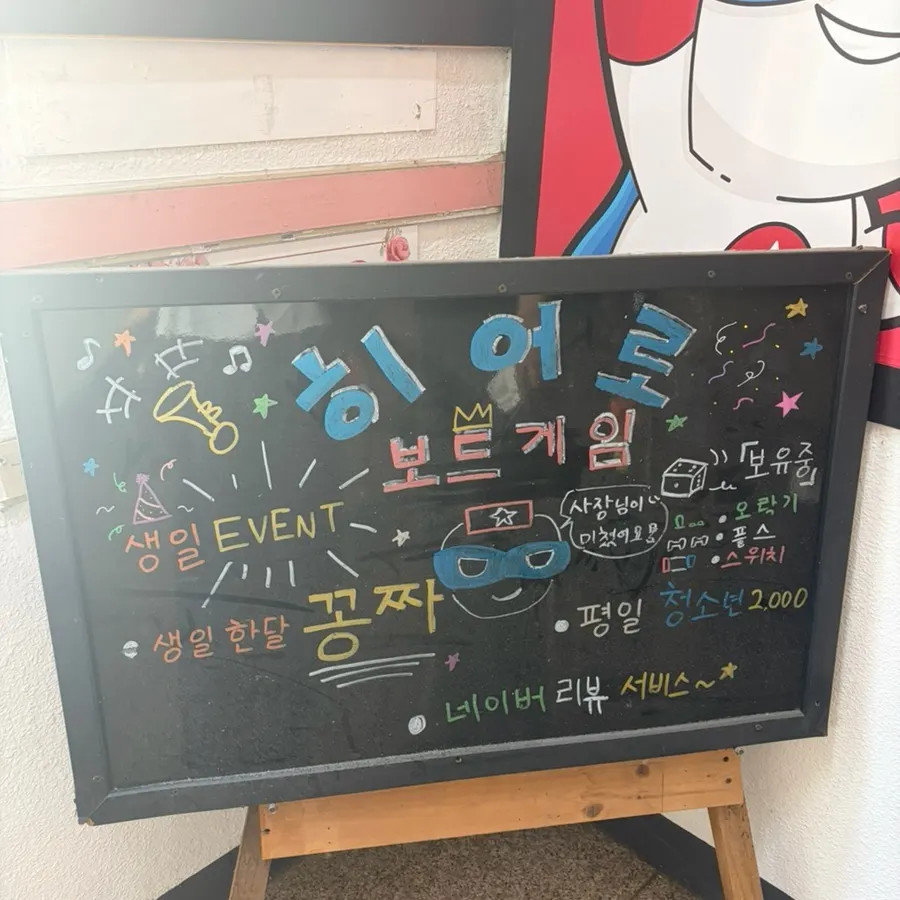 히어로
보드게임
생일 EVENT
사장님이
미쳤어요!!
「보유중」
• 오락기
• 플스
• 스위치
• 생일 한달 꽁짜
• 평일 청소년 2,000
• 네이버 리뷰 서비스~